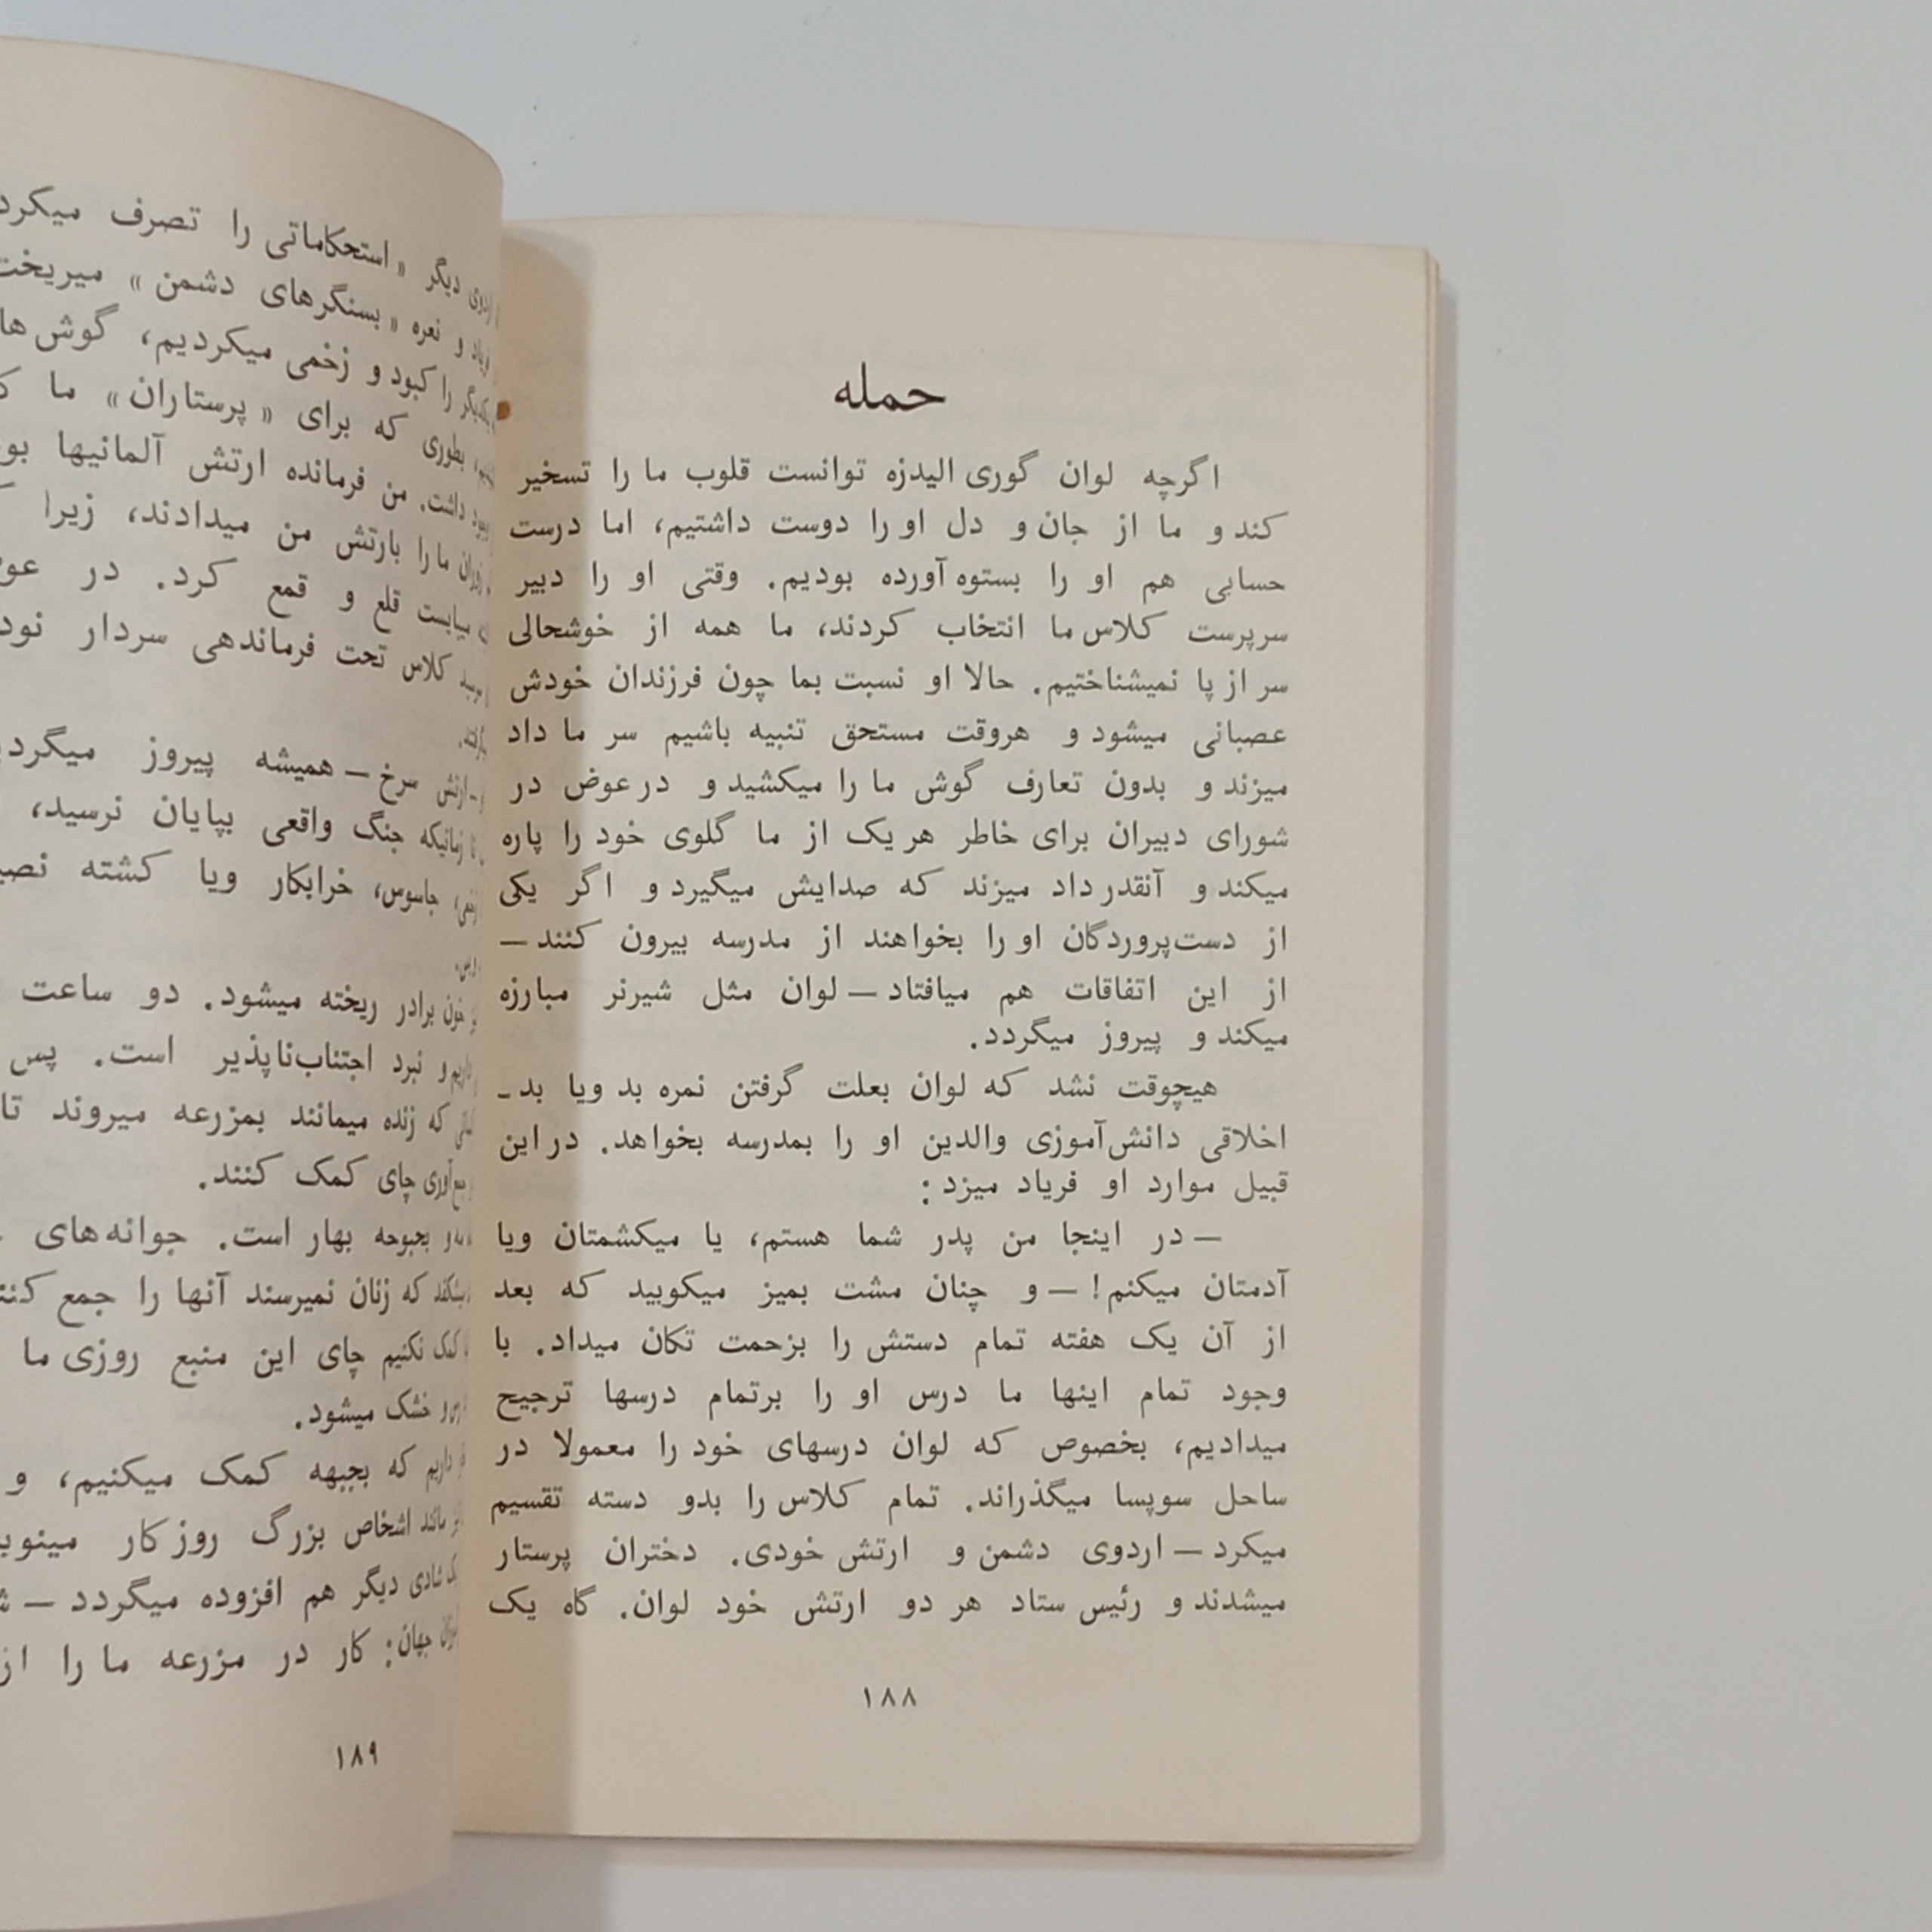 حمله
اگرچه لوان گوری الیدزه توانست قلوب ما را تسخیر
کند و ما از جان و دل او را دوست داشتیم، اما درست
حسابی هم او را بستوه آورده بودیم. وقتی او را دبیر
سرپرست کلاس ما انتخاب کردند، ما همه از خوشحالی
سر از پا نمیشناختیم. حالا او نسبت بما چون فرزندان خودش
عصبانی میشود و هروقت مستحق تنبیه باشیم سر ما داد
میزند و بدون تعارف گوش ما را میکشید و در عوض در
شورای دبیران برای خاطر هر یک از ما گلوی خود را پاره
میکند و آنقدر داد میزند که صدایش میگیرد و اگر یکی
از دست‌پروردگان او را بخواهند از مدرسه بیرون کنند —
از این اتفاقات هم میافتاد — لوان مثل شیرنر مبارزه
میکند و پیروز میگردد.
هیچوقت نشد که لوان بعلت گرفتن نمره بد ویا بد ـ
اخلاقی دانش‌آموزی والدین او را بمدرسه بخواهد. در این
قبیل موارد او فریاد میزد:
— در اینجا من پدر شما هستم، یا میکشمتان ویا
آدمتان میکنم! — و چنان مشت بمیز میکوبید که بعد
از آن یک هفته تمام دستش را بزحمت تکان میداد. با
وجود تمام اینها ما درس او را برتمام درسها ترجیح
میدادیم، بخصوص که لوان درسهای خود را معمولا در
ساحل سوپسا میگذراند. تمام کلاس را بدو دسته تقسیم
میکرد — اردوی دشمن و ارتش خودی. دختران پرستار
میشدند و رئیس ستاد هر دو ارتش خود لوان. گاه یک
۱۸۸
اردوی دیگر «استحکاماتی را تصرف میکرد
و نعره «بسنگرهای دشمن» میریخت
یکدیگر را کبود و زخمی میکردیم، گوش‌ها
بطوری که برای «پرستاران» ما
داشت. من فرمانده ارتش آلمانیها
ما را بارتش من میدادند، زیرا
میبایست قلع و قمع کرد. در
کلاس تحت فرماندهی سردار
ارتش سرخ — همیشه پیروز
تا زمانیکه جنگ واقعی بپایان نرسید،
جاسوس، خرابکار ویا کشته
خون برادر ریخته میشود. دو ساعت
و نبرد اجتناب‌ناپذیر است. پس
که زنده میمانند بمزرعه میروند تا
چای کمک کنند.
بحبوحه بهار است. جوانه‌های
که زنان نمیرسند آنها را جمع
کمک نکنیم چای این منبع روزی ما
و خشک میشود.
داریم که بجبهه کمک میکنیم، و
مانند اشخاص بزرگ روزکار
شادی دیگر هم افزوده میگردد —
جهان: کار در مزرعه ما را از
۱۸۹